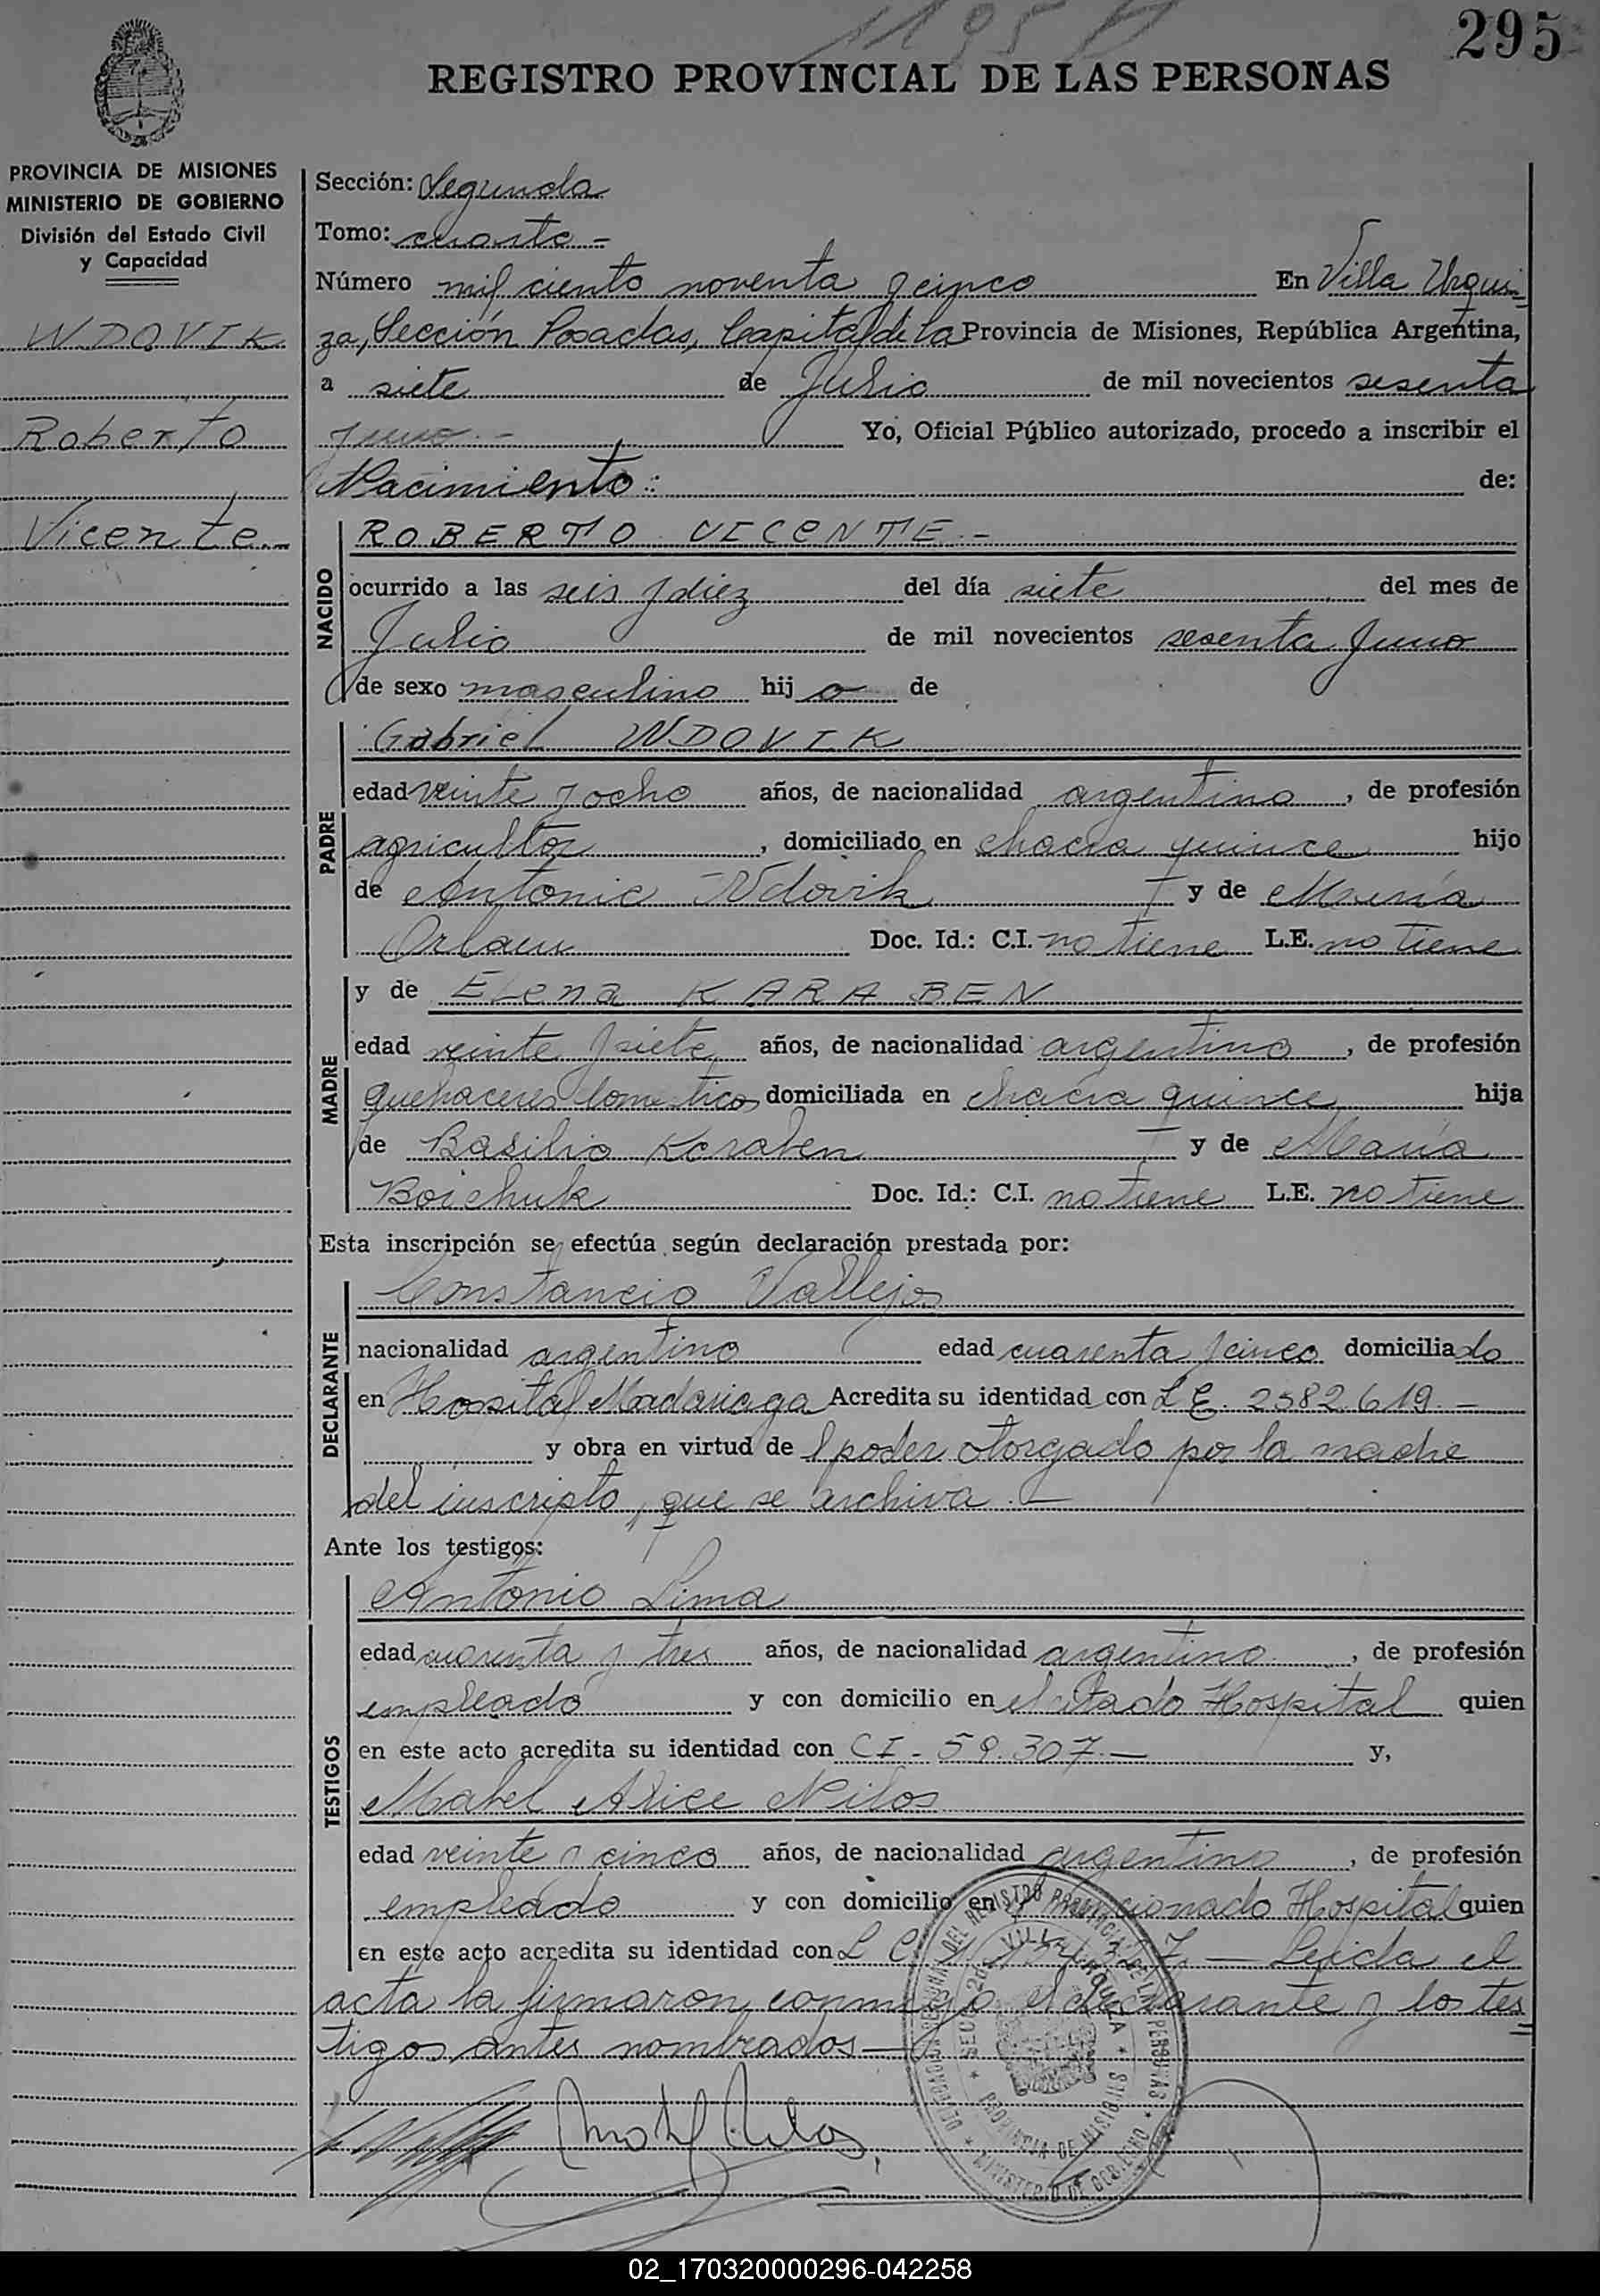 295
REGISTRO PROVINCIAL DE LAS PERSONAS
PROVINCIA DE MISIONES
MINISTERIO DE GOBIERNO
División del Estado Civil
y Capacidad
WDOVIK
Roberto
Vicente.
Sección: Segunda
Tomo: cuarto -
Número mil ciento noventa y cinco En Villa Urqui=
za, Sección Posadas, Capital de la Provincia de Misiones, República Argentina,
a siete de Julio de mil novecientos sesenta
y uno.- Yo, Oficial Público autorizado, procedo a inscribir el
Nacimiento: de:
NACIDO
ROBERTO VICENTE.-
ocurrido a las seis y diez del día siete del mes de
Julio de mil novecientos sesenta y uno
de sexo masculino hij o de
PADRE
Gabriel WDOVIK
edad veinte y ocho años, de nacionalidad argentino, de profesión
agricultor, domiciliado en chacra quince hijo
de Antonio Wdovik y de María
Doc. Id.: C.I. no tiene L.E. no tiene
MADRE
y de Elena KARABEN
edad veinte y siete años, de nacionalidad argentino, de profesión
quehaceres domesticos domiciliada en chacra quince hija
de Basilio Karaben y de María
Boichuk Doc. Id.: C.I. no tiene L.E. no tiene
Esta inscripción se efectúa según declaración prestada por:
DECLARANTE
Constancio Vallejos
nacionalidad argentino edad cuarenta y cinco domiciliado
en Hospital Madariaga Acredita su identidad con L E. 2582.619.-
y obra en virtud de l poder otorgado por la madre
del inscripto, que se archiva.-
Ante los testigos:
TESTIGOS
Antonio Lima
edad cuarenta y tres años, de nacionalidad argentino, de profesión
empleado y con domicilio en el citado Hospital quien
en este acto acredita su identidad con CI - 59.307.- y,
Mabel Alice Nilos
edad veinte y cinco años, de nacionalidad argentino, de profesión
empleado y con domicilio en el mencionado Hospital quien
en este acto acredita su identidad con L C - Leida el
acta la firmaron conmigo el declarante y los tes=
tigos antes nombrados -
02_170320000296-042258